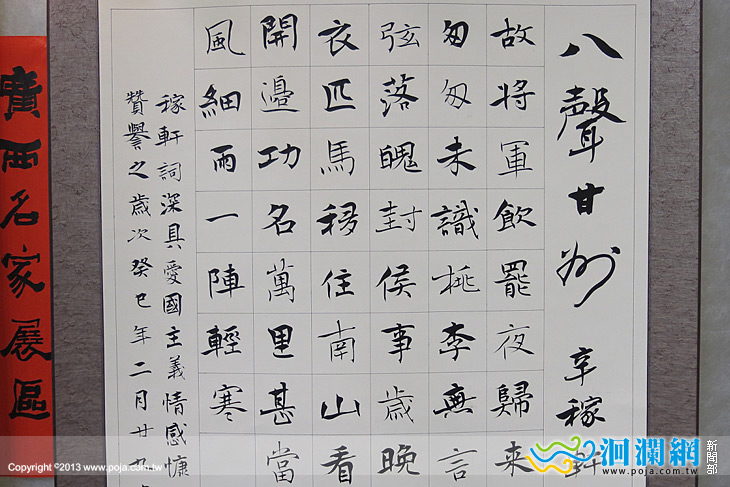 八聲甘州 辛稼軒
故將軍飲罷夜歸来
匆匆未識桃李無言
弦落魄封侯事歲晚
衣匹馬移住南山看
開邊功名萬里甚當
風細雨一陣輕寒
稼軒詞深具愛國主義情感慷
贊譽之歲次癸巳年二月廿九
廣西名家展區
洄瀾網 新聞部
Copyright ©2013 www.poja.com.tw